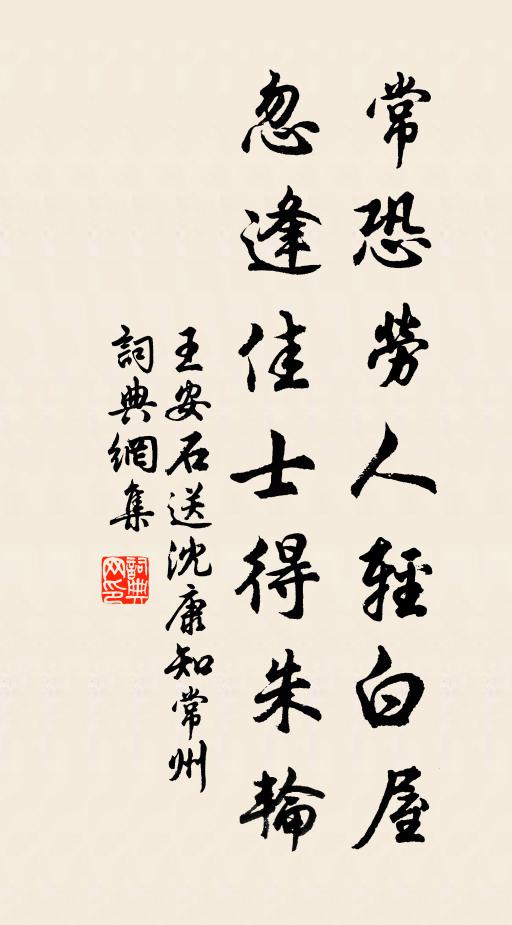 常恐勞人輕白屋
忽逢佳士得朱輪
王安石送沈康知常州
詞典網集
詞典網印